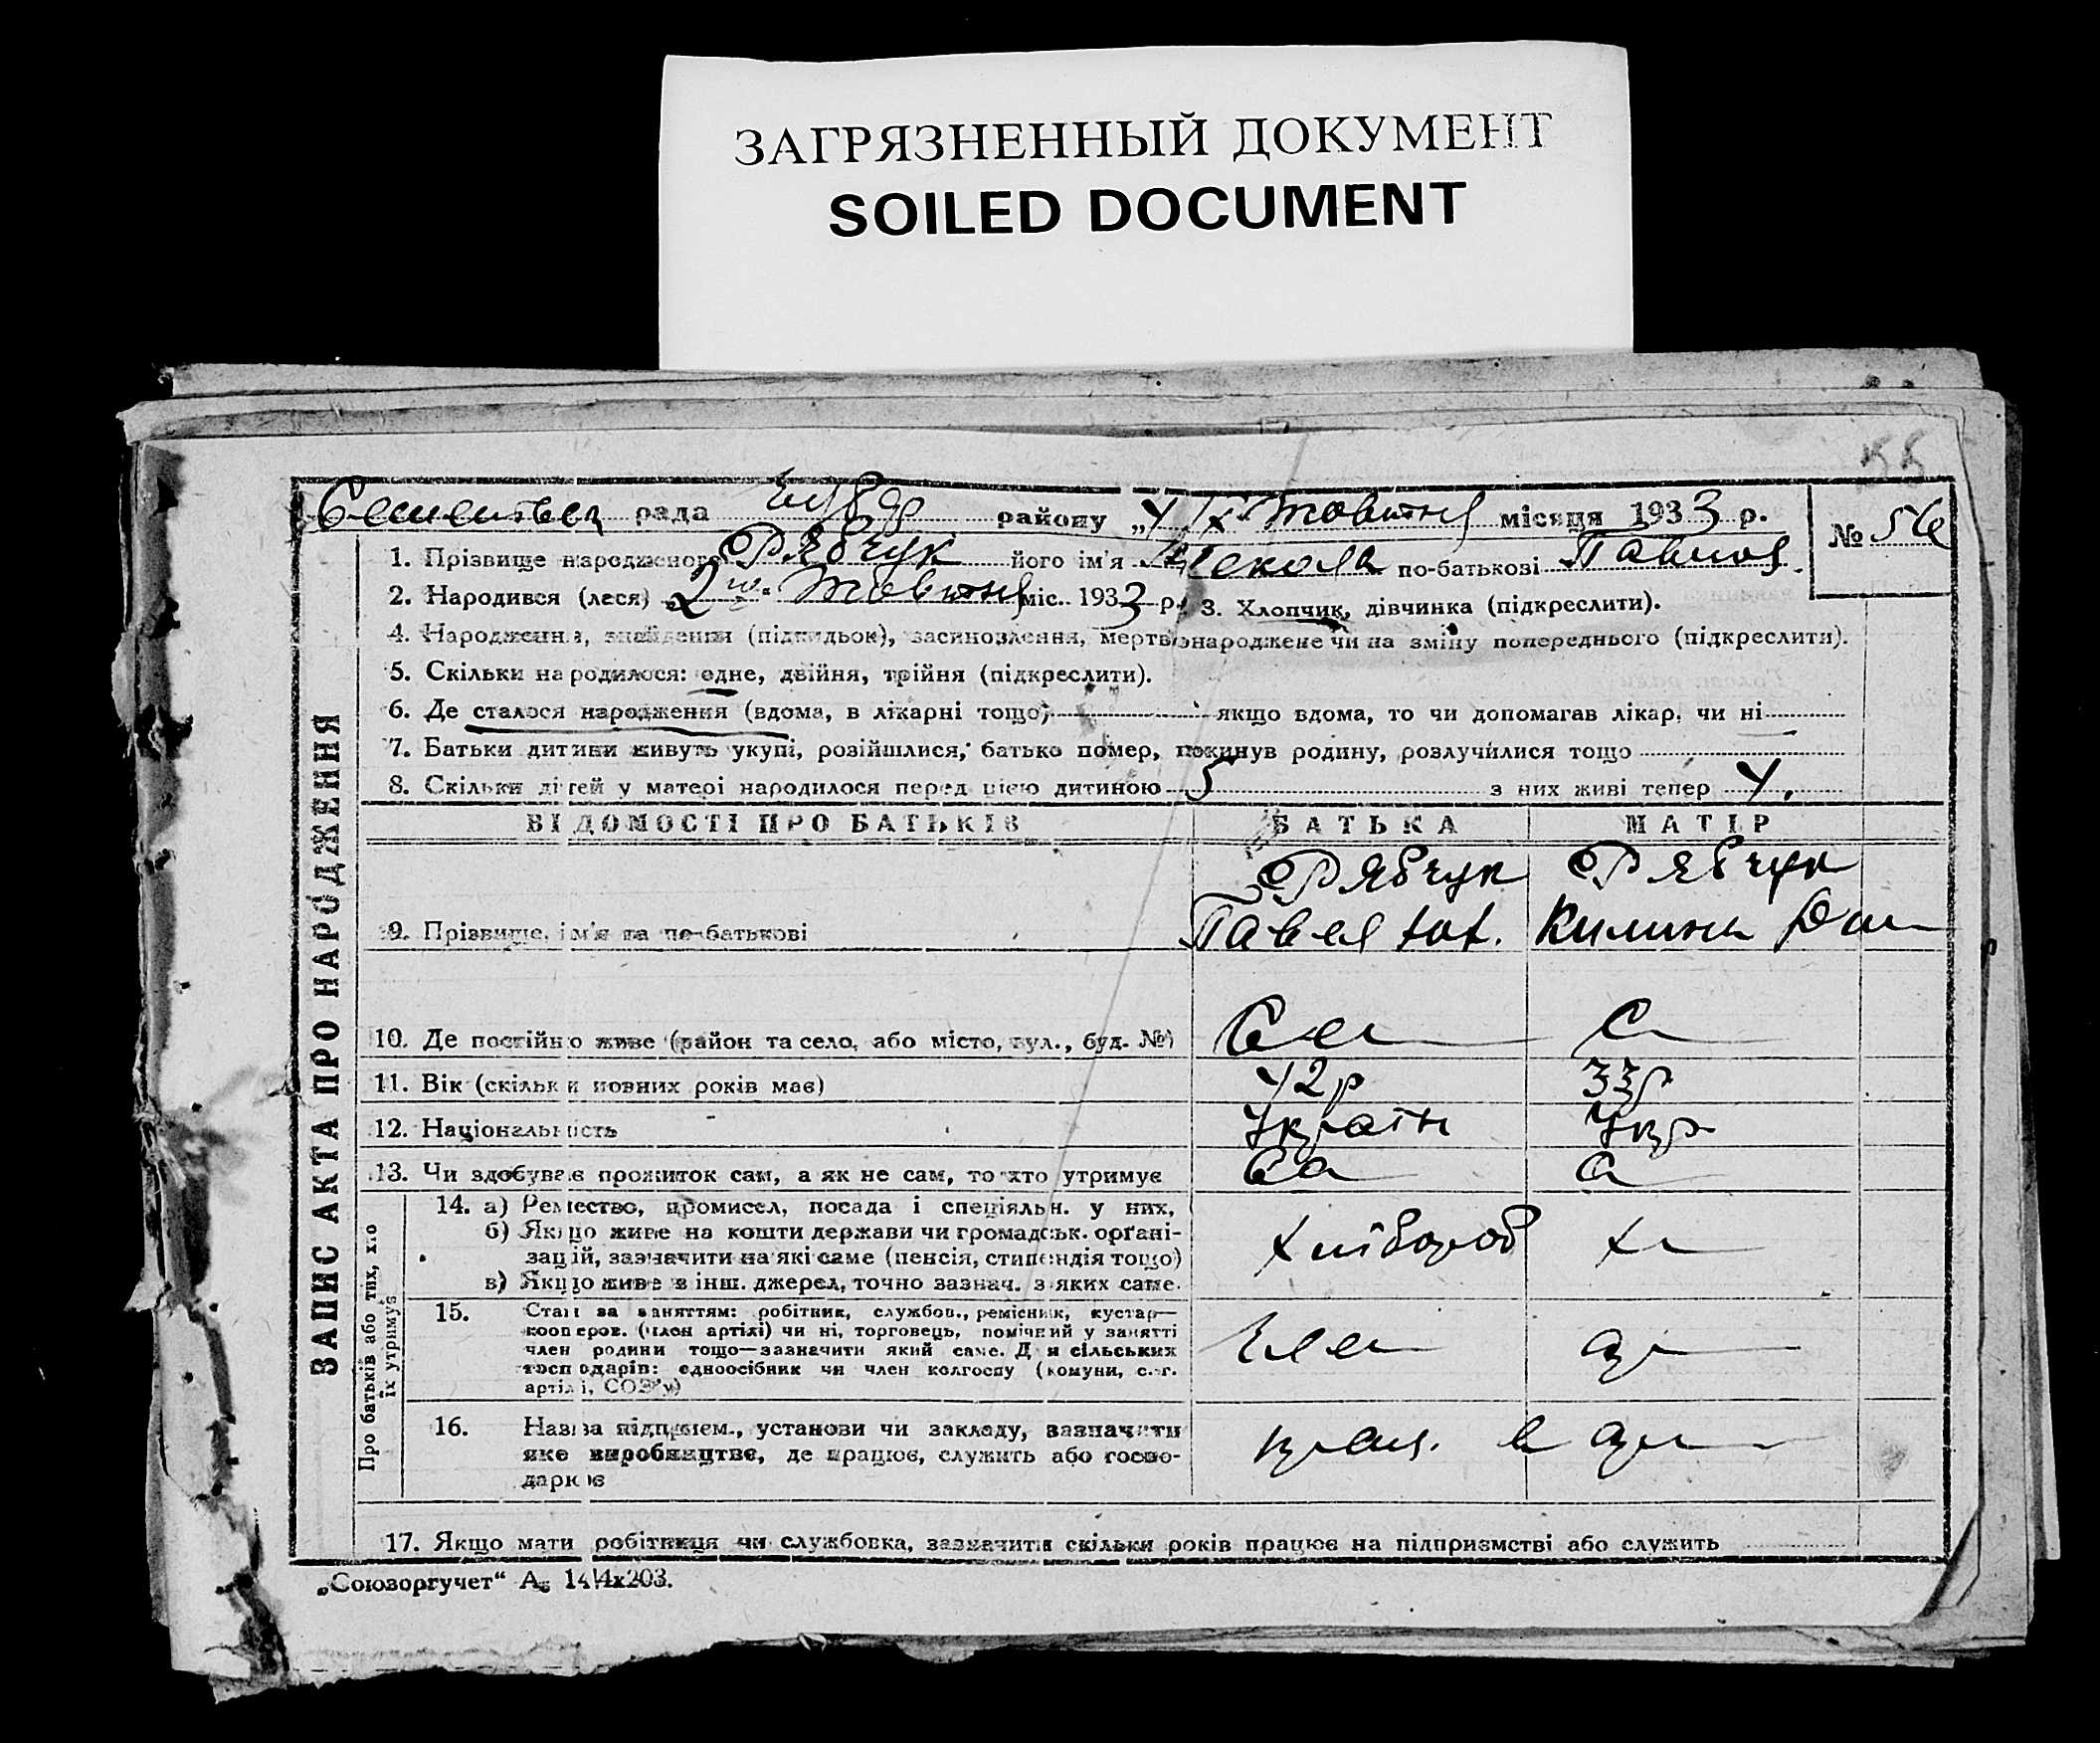 ЗАГРЯЗНЕННЫЙ ДОКУМЕНТ
SOILED DOCUMENT
рада району „4 Жовтня місяця 1933 р. №
1. Прізвище народженого Рябчук його ім'я Микола по-батькові Павлов.
2. Народився (лася) 2го Жовтня міс. 1933 р. 3. Хлопчик, дівчинка (підкреслити).
4. Народження, знайдення (підкидьок), засиновлення, мертвонароджене чи на зміну попереднього (підкреслити).
5. Скільки народилося: одне, двійня, трійня (підкреслити).
6. Де сталося народження (вдома, в лікарні тощо) якщо вдома, то чи допомагав лікар, чи ні
7. Батьки дитини живуть укупі, розійшлися, батько помер, покинув родину, розлучилися тощо
8. Скільки дітей у матері народилося перед цією дитиною 5 з них живі тепер 4.
ВІДОМОСТІ ПРО БАТЬКІВ БАТЬКА МАТІР
Рябчук Рябчук
9. Прізвище, ім'я та по-батькові Павел
10. Де постійно живе (район та село, або місто, вул., буд. №)
11. Вік (скільки повних років має) 42р 33р
12. Національність Україн Укр
13. Чи здобуває прожиток сам, а як не сам, то хто утримує Са
14. а) Ремество, промисел, посада і спеціяльн. у них,
б) Якщо живе на кошти держави чи громадськ. орґані-
зацій, зазначити на які саме (пенсія, стипендія тощо) хлібороб хл
в) Якщо живе з інш. джерел, точно зазнач. з яких саме.
15. Стан за заняттям: робітник, службов., ремісник, кустар—
кооперов. (член артілі) чи ні, торговець, помічний у занятті
член родини тощо—зазначити який саме. Для сільських
господарів: одноосібник чи член колгоспу (комуни, с.-г.
артілі, СОЗ'у)
16. Назва підприєм., установи чи закладу, зазначити
яке виробництве, де працює, служить або госпо-
дарює
17. Якщо мати робітниця чи службовка, зазначити скільки років працює на підприємстві або служить
„Союзоргучет“
ЗАПИС АКТА ПРО НАРОДЖЕННЯ
Про батьків або тих, хто
їх утримує